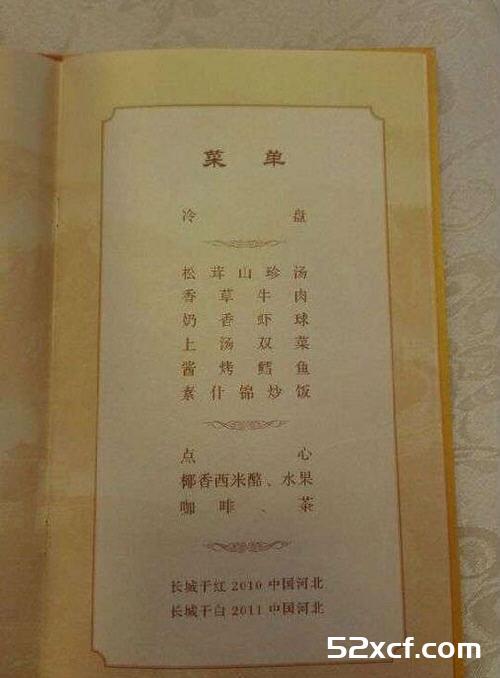 菜单
冷盘
松茸山珍汤
香草牛肉
奶香虾球
上汤双菜
酱烤鳕鱼
素什锦炒饭
点心
椰香西米酪、水果
咖啡、茶
长城干红 2010 中国河北
长城干白 2011 中国河北
52xcf.com